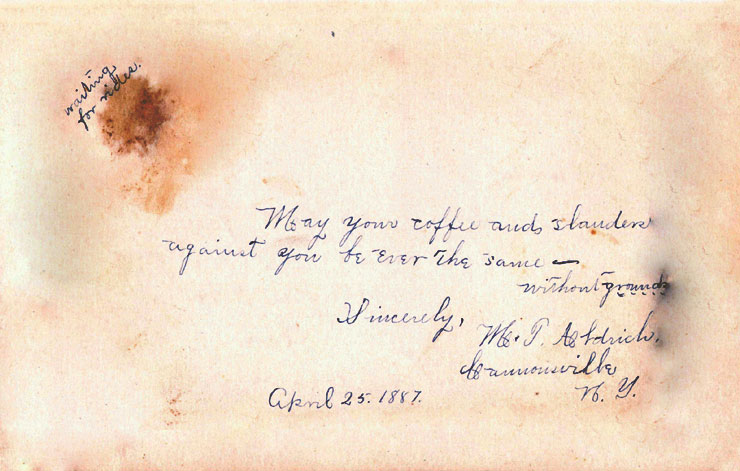 waiting
for rides.
May your coffee and slanders
against you be ever the same —
without grounds
Sincerely,
M. T. Aldrich.
Cannonsville
N. Y.
April 25. 1887.